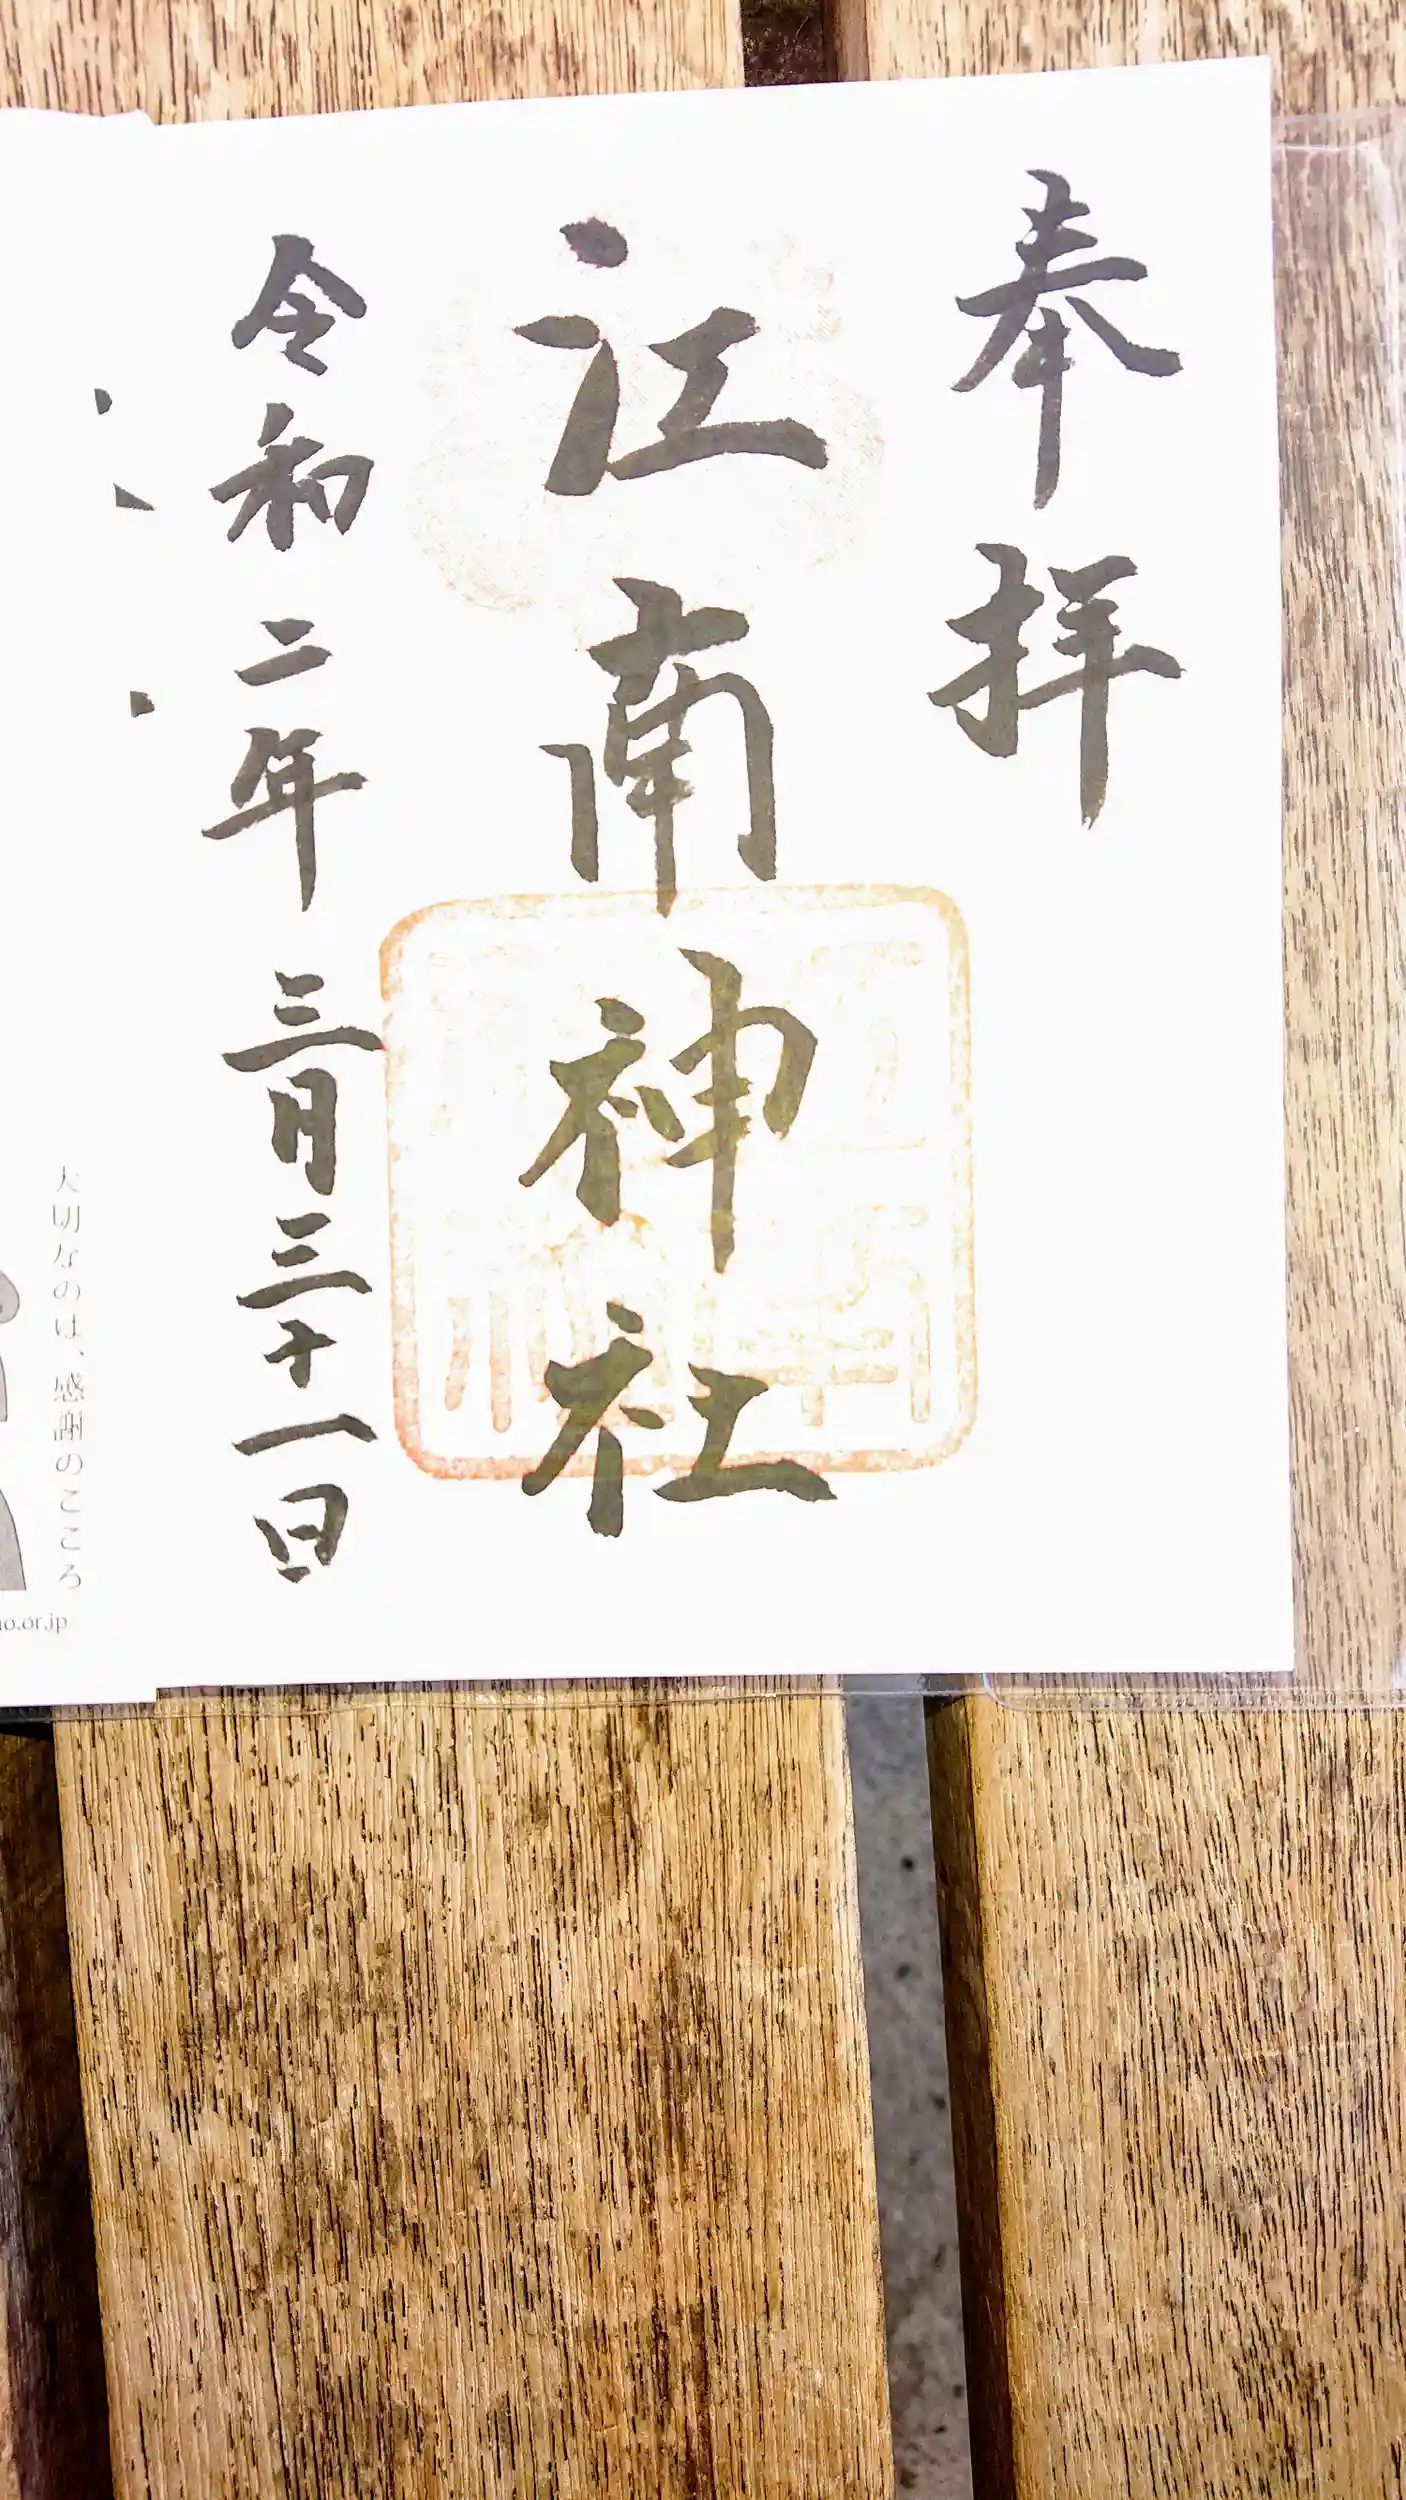 奉拝
江南神社
令和二年三月三十一日
大切なのは、感謝のこころ
o.or.jp